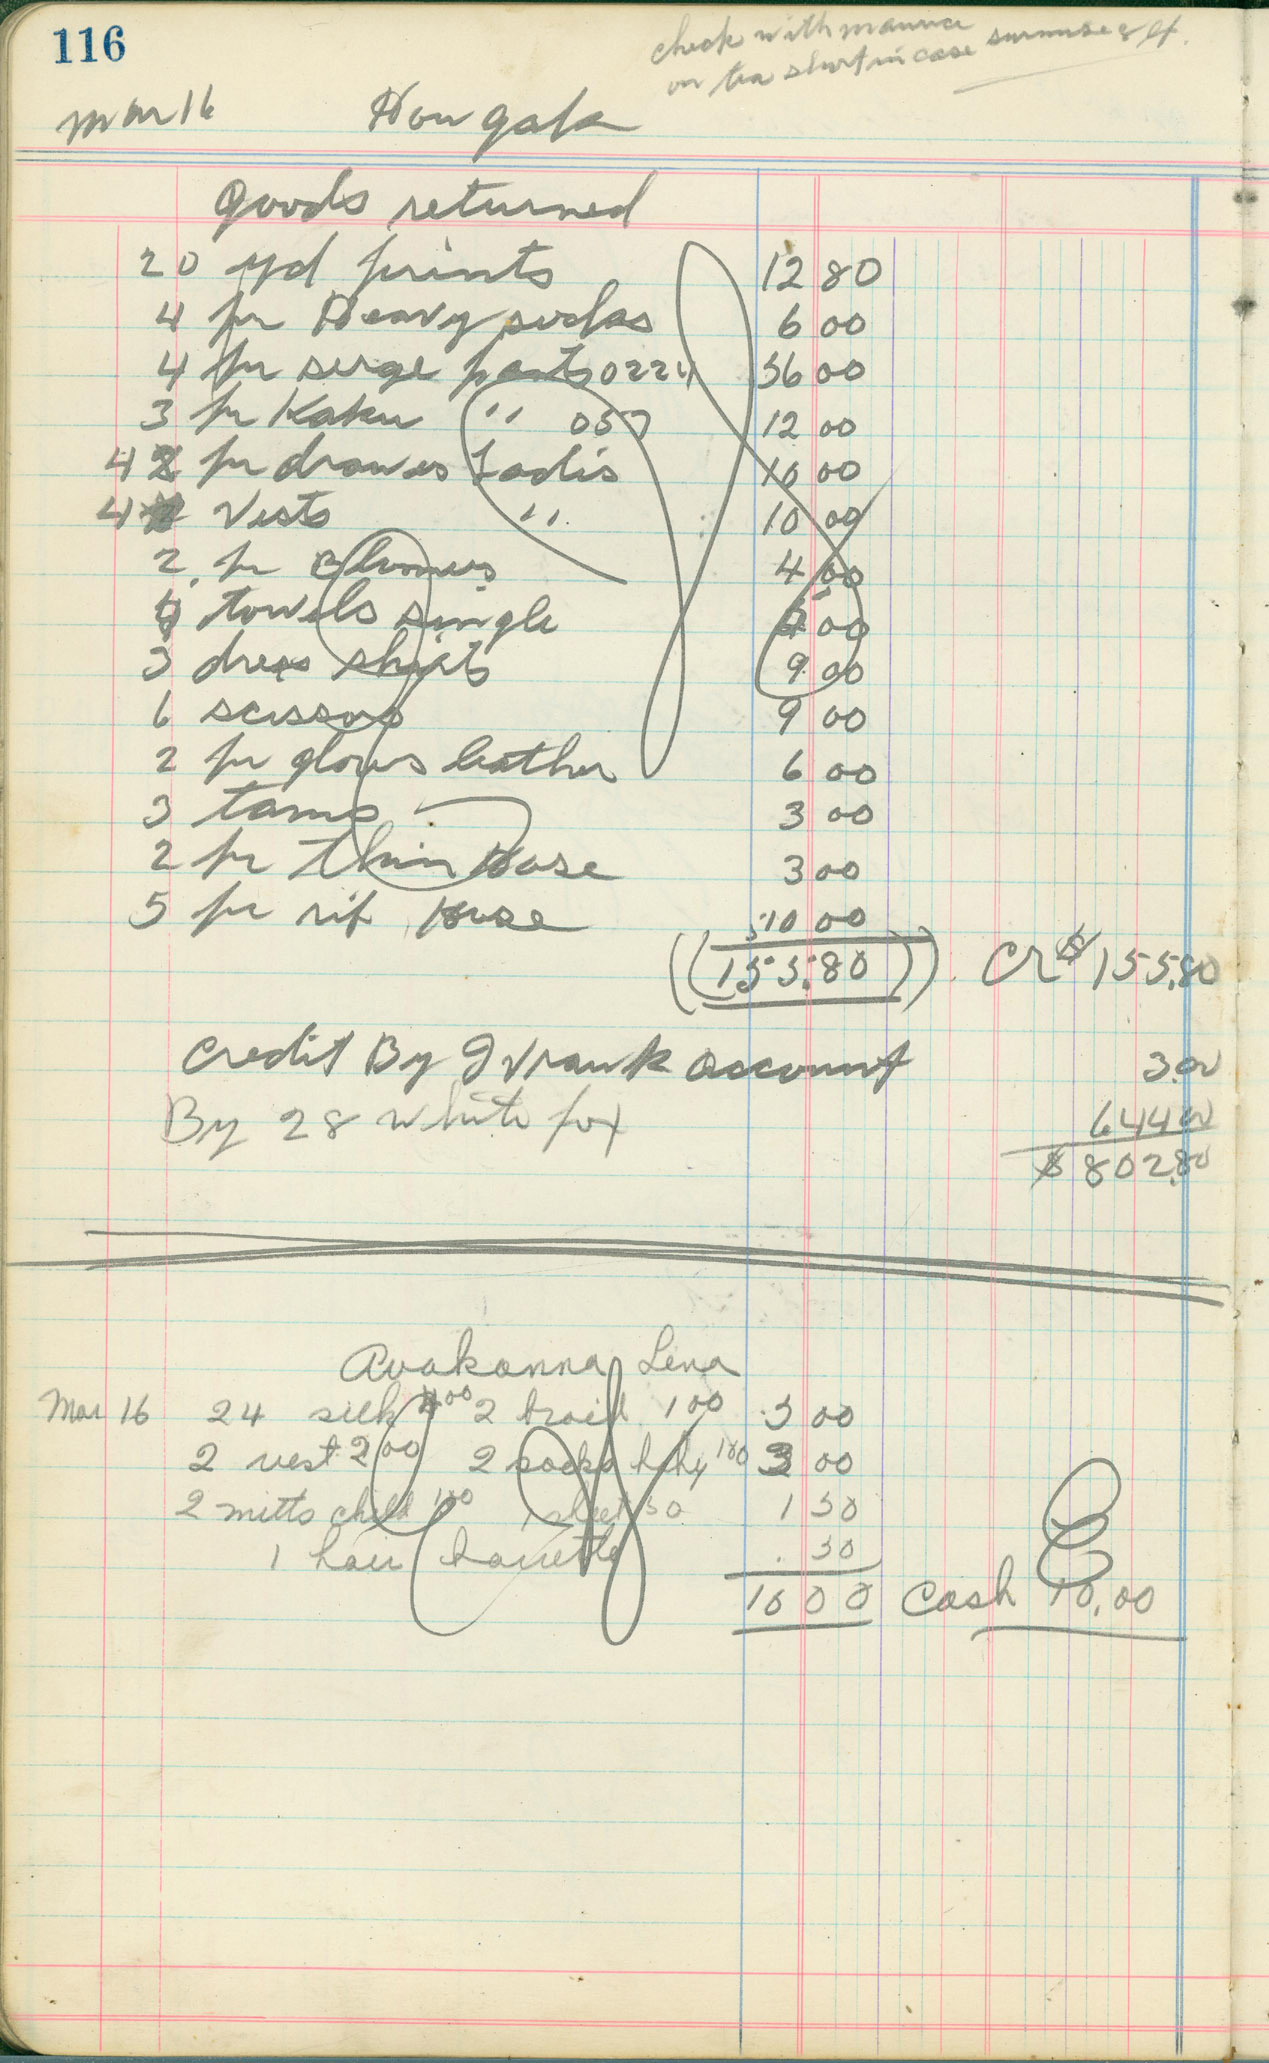 116
check with maurice
on tea short in case
Mar 16
goods returned
20 yd prints 12 80
4 pr Heavy socks 6 00
4 pr serge pants 0224 56 00
3 pr Kaku " 057 12 00
4 pr drawers Ladis 10 00
4 Vests " 10 00
2 pr Blumers 4 00
towels single 5 00
3 dress shirts 9 00
6 scissors 9 00
2 pr gloves leather 6 00
3 tams 3 00
2 pr thin Hose 3 00
5 pr rib Hose 10 00
155.80 Cr $155.80
Credit By J Vrank account 3.00
By 28 white fox 644 00
$802.80
Avakanna Lena
Mar 16 24 silk 4 00 2 braid 1 00 5 00
2 vest 2 00 2 socks baby 100 3 00
2 mitts child 100 1 sheet 50 1 50
1 hair barrette .50
10 00 Cash 10.00